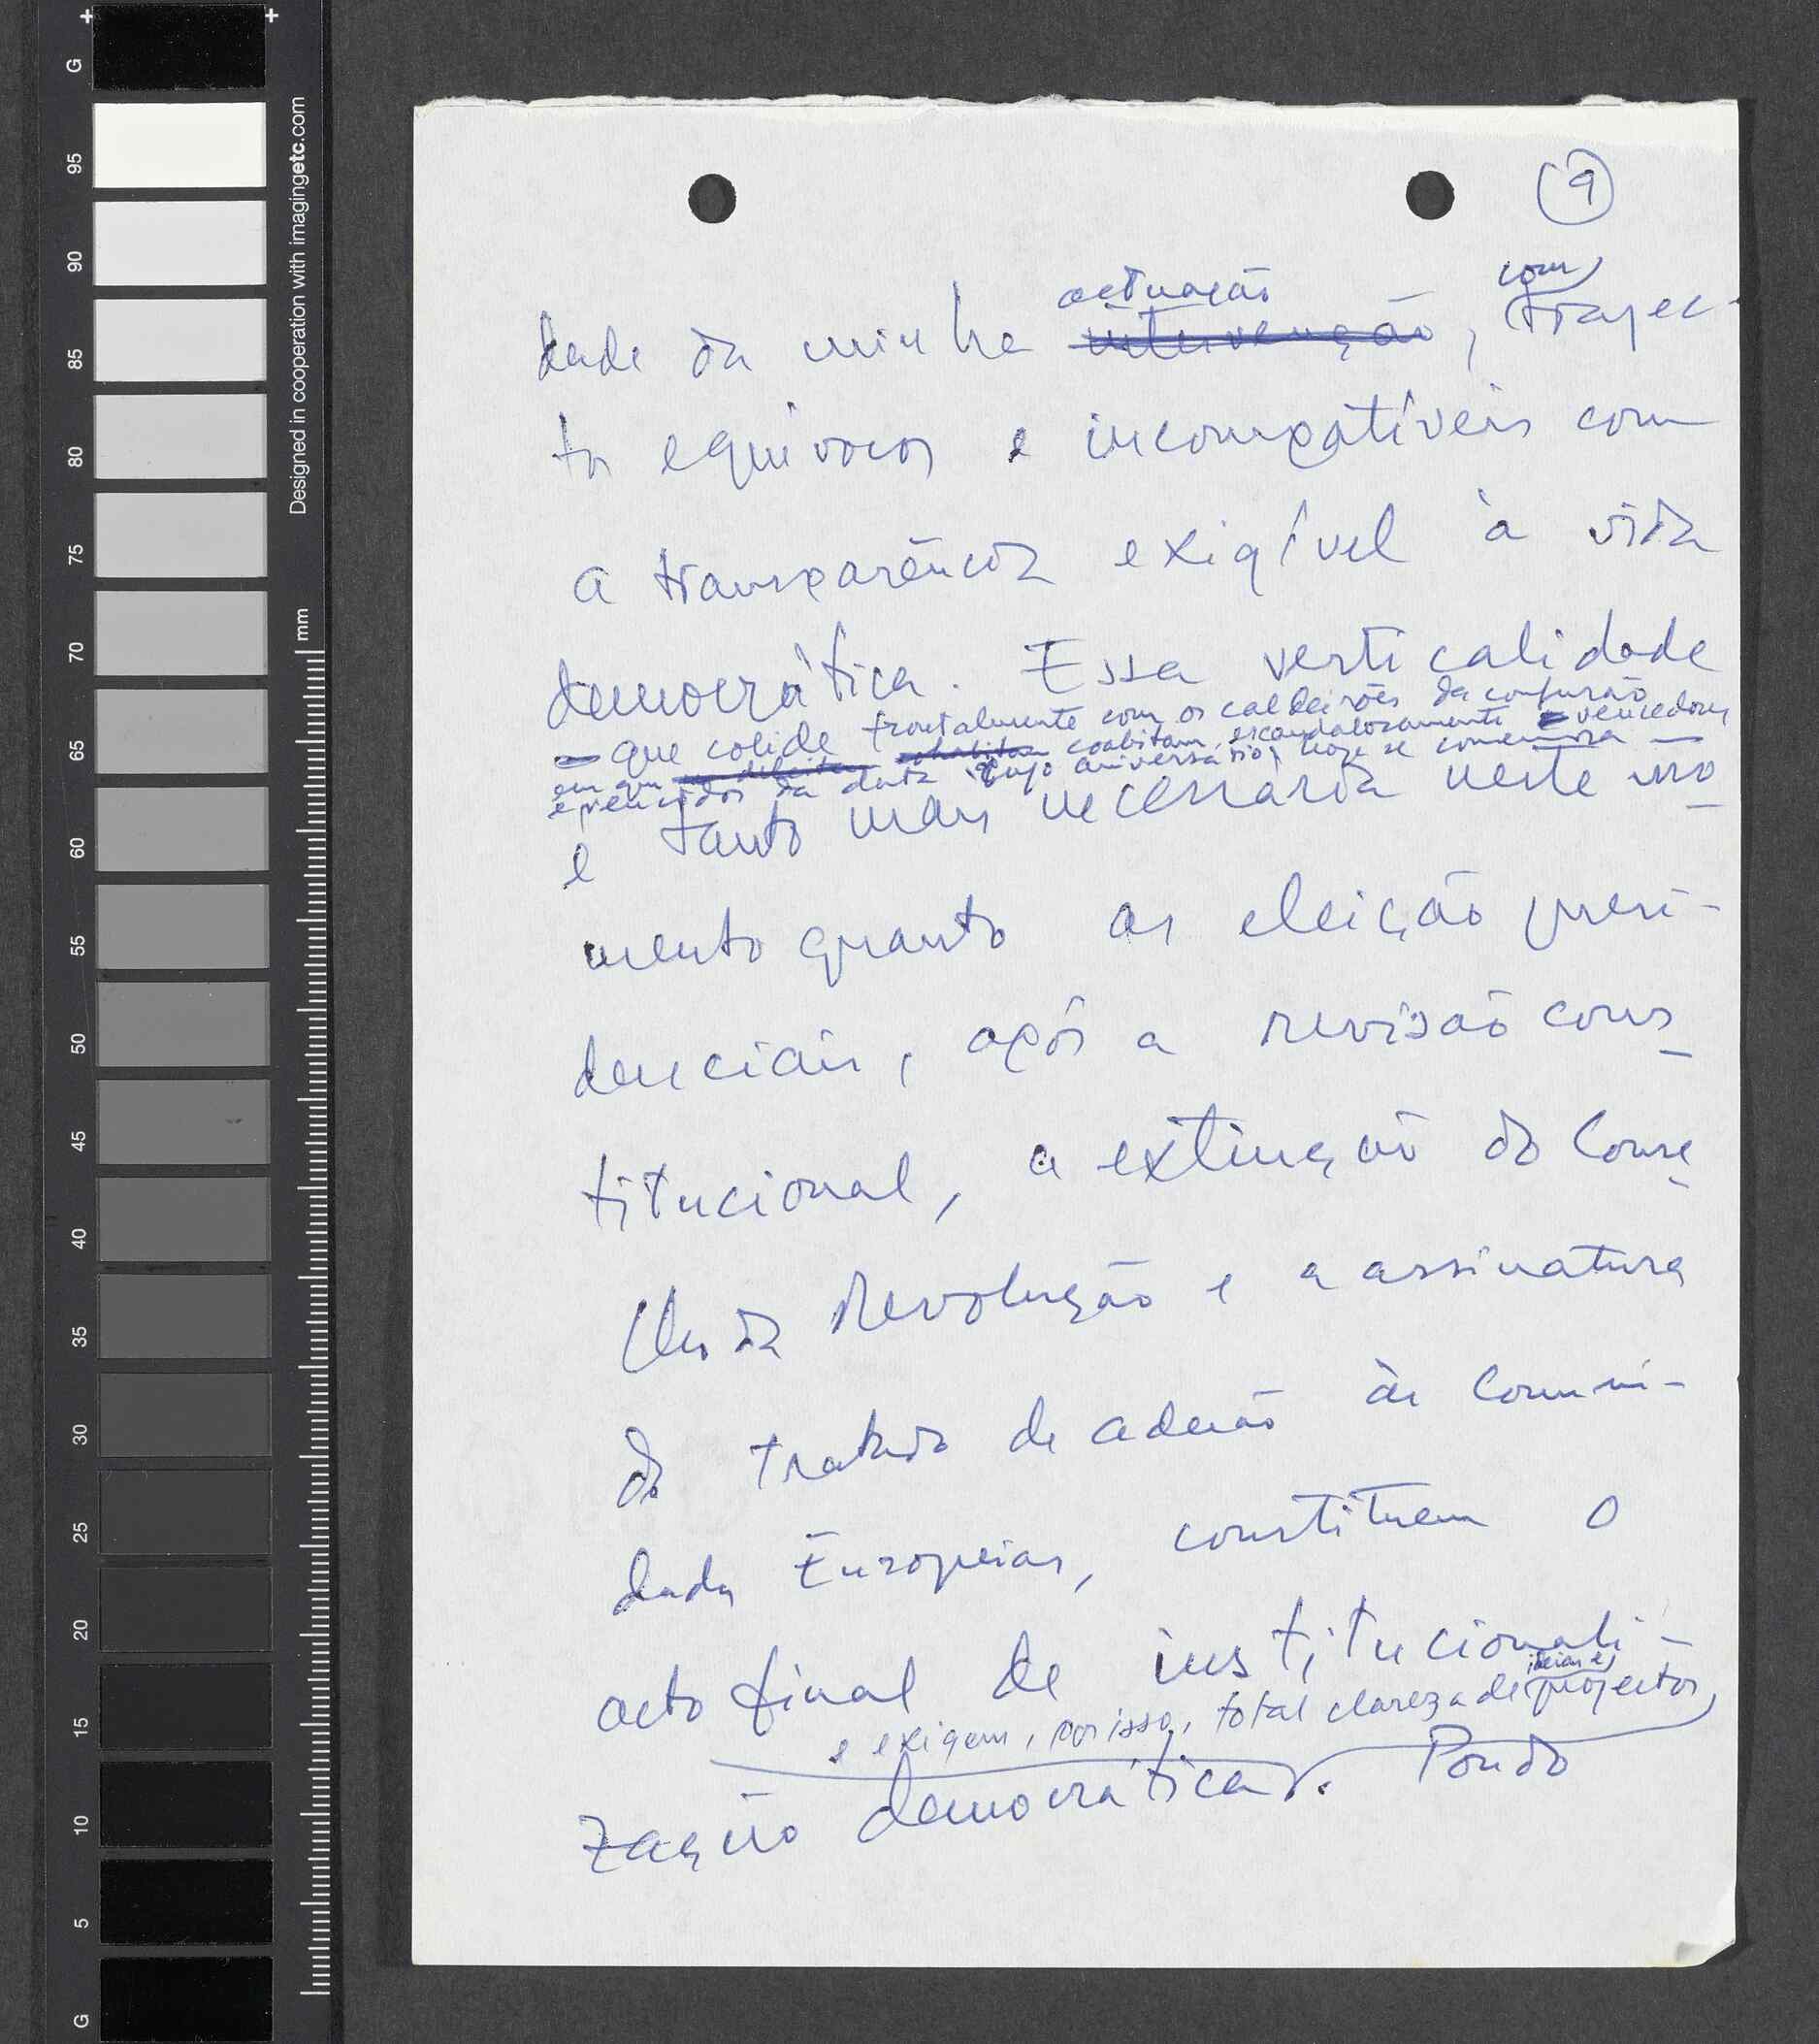 G
95
90
85
80
75
70
65
60
55
50
45
40
35
30
25
20
15
10
5
G
Designed in cooperation with imagingetc.com
mm
9
actuação com
dade da minha intervenção, trajec-
tos equívocos e incompatíveis com
a transparência exigível à vida
democrática. Essa verticalidade
– que colide frontalmente com os caldeirões da confusão
em que coabitam, escandalosamente vencedores
e vencidos da data cujo aniversário hoje se comemora –
é tanto mais necessária neste mo-
mento quanto as eleição presi-
denciais, após a revisão cons-
titucional, a extinção do Conse-
lho da Revolução e a assinatura
do tratado de adesão às Comuni-
dades Europeias, constituem o
acto final de institucionali-
ideias e
e exigem, por isso, total clareza de projectos
zação democrática. Pondo